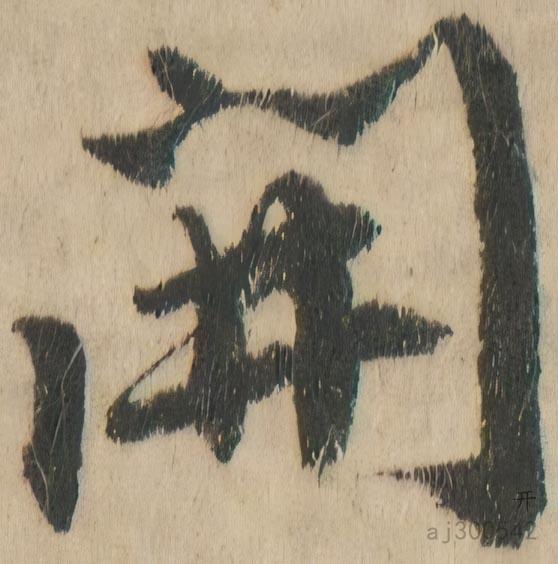 開
开
aj300542